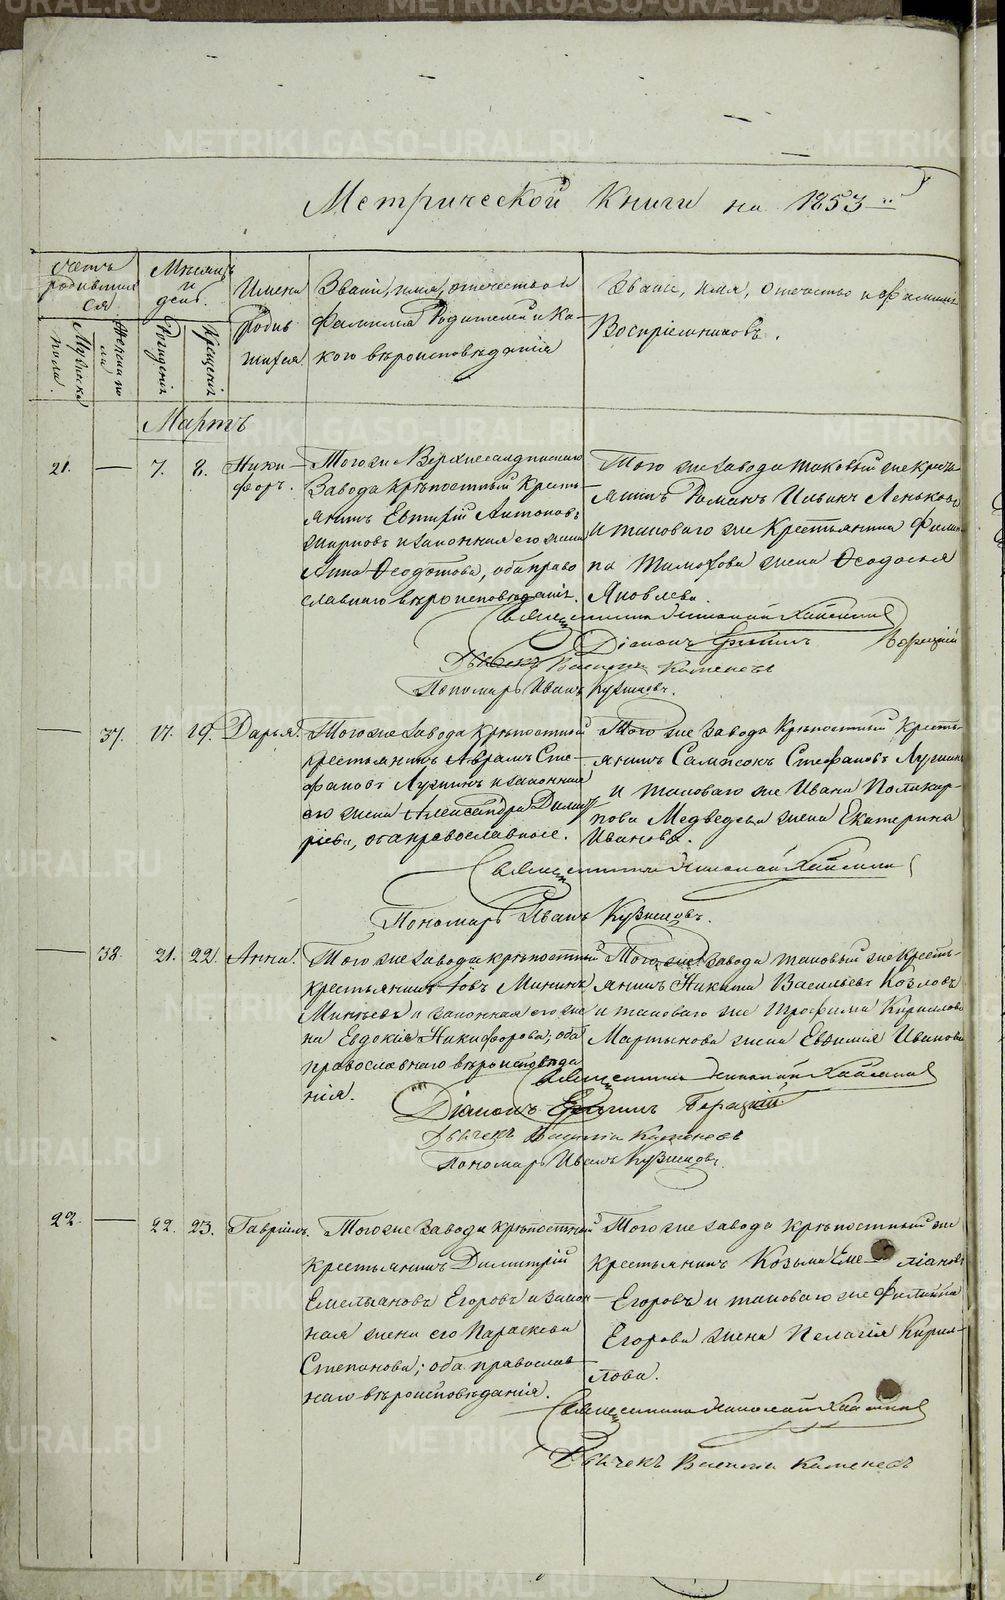 Метрической Книги на 1853ій
Счетъ родившихся
Мѣсяцъ и день.
Имена Родившихся
Званіе, имя, отчество и фамилія Родителей и какого вѣроисповѣданія
Званіе, имя, отчество и фамилія Воспріемниковъ.
Мужеска пола.
Женска пола
Рожденія
Крещенія
Мартъ
21. — 7. 8. Никифоръ.
Тогоже
Завода Крѣпостный Кресть-
янинъ Евтифій Антоновъ
и законная его жена
Анна Ѳеодотова, оба право
славнаго вѣроисповѣданія.
Того же завода таковый же кресть-
янинъ Романъ Ильинъ Леньковъ
и таковаго же Крестьянина Филип-
па Тимофеева жена Ѳеодосья
Яковлева.
Священникъ Николай
Діаконъ
Дьячекъ Василій Каменевъ
Пономарь Иванъ Кузнецовъ.
— 37. 17. 19. Дарья.
Тогоже завода Крѣпостный
крестьянинъ Аврамъ Сте-
фановъ Лузинъ и законная
его жена Александра Дмит-
ріева, оба православные.
Того же завода Крѣпостный Кресть-
янинъ Сампсонъ Стефановъ Лузинъ
и таковаго же Ивана Поликар-
пова Медведева жена Екатерина
Иванова.
Священникъ Николай
Пономарь Иванъ Кузнецовъ.
— 38. 21. 22. Анна.
Того же завода крѣпостный
крестьянинъ Іовъ Мининъ
и законная его же
на Евдокія Никифорова; оба
православнаго вѣроисповѣда
нія.
Того же завода таковый же кресть-
янинъ Никита Васильевъ Козловъ
и таковаго же Трофима Кириллова
Мартынова жена Евфимія Иванова
Священникъ Николай
Діаконъ
Дьячекъ Василій Каменевъ
Пономарь Иванъ Кузнецовъ.
22. — 22. 23. Гавріилъ.
Тогоже завода крѣпостный
крестьянинъ Димитрій
Емельяновъ Егоровъ и закон-
ная жена его Параскева
Степанова; оба православ-
наго вѣроисповѣданія.
Того же завода крѣпостный же
крестьянинъ Козьма Емеліановъ
Егоровъ и таковаго же Филиппа
Егорова жена Пелагія Кирил-
лова.
Священникъ Николай
Дьячекъ Василій Каменевъ
METRIKI.GASO-URAL.RU